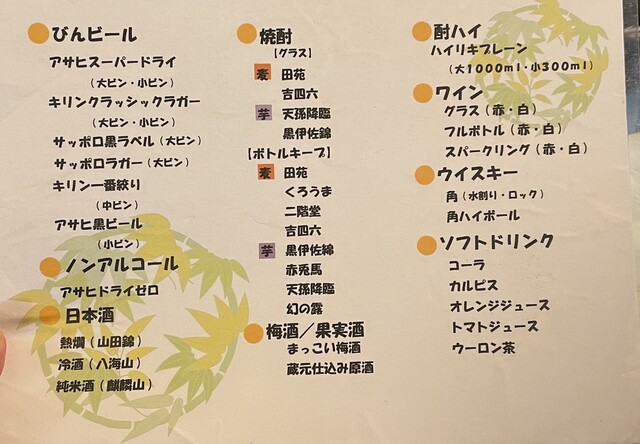 びんビール
アサヒスーパードライ
（大ビン・小ビン）
キリンクラッシックラガー
（大ビン・小ビン）
サッポロ黒ラベル（大ビン）
サッポロラガー（大ビン）
キリン一番絞り
（中ビン）
アサヒ黒ビール
（小ビン）
ノンアルコール
アサヒドライゼロ
日本酒
熱燗（山田錦）
冷酒（八海山）
純米酒（麒麟山）
焼酎
【グラス】
麦 田苑
吉四六
芋 天孫降臨
黒伊佐錦
【ボトルキープ】
麦 田苑
くろうま
二階堂
吉四六
芋 黒伊佐錦
赤兎馬
天孫降臨
幻の露
梅酒／果実酒
まっこい梅酒
蔵元仕込み原酒
酎ハイ
ハイリキプレーン
（大1000ml・小300ml）
ワイン
グラス（赤・白）
フルボトル（赤・白）
スパークリング（赤・白）
ウイスキー
角（水割り・ロック）
角ハイボール
ソフトドリンク
コーラ
カルピス
オレンジジュース
トマトジュース
ウーロン茶